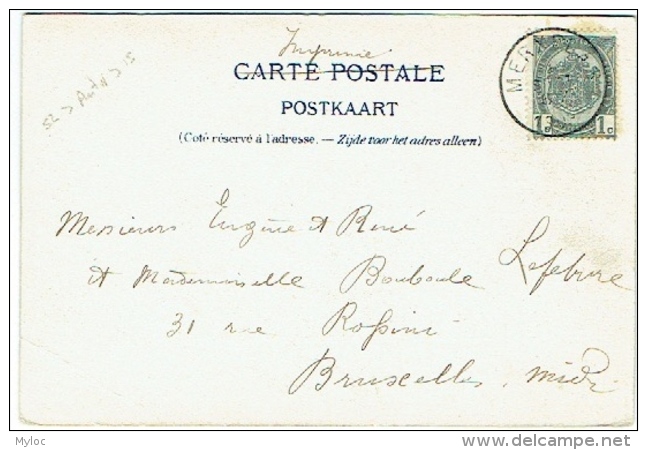 Imprimé
CARTE POSTALE
POSTKAART
(Coté réservé à l'adresse. — Zijde voor het adres alleen)
MERXPL
1c 1c
Messieurs Eugène et René
Lefebvre
et Mademoiselle Bouboule
31 rue Rossini
Bruxelles. midi
Myloc
delcampe.net